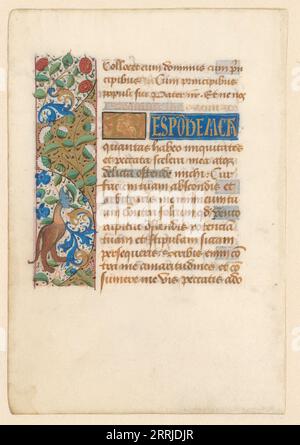 Collocet eum dominus cum prin
cipibus Cum principibus
populi sui Pater nr Et ne nos
ESPÕDE MICH
quantas habeo iniquitates
et peccata scelera mea atqz
delicta ostende michi Cur
faciem tuam abscondis et
arbitraris me inimicum tuum
contra folium qd vento
rapitur ostendis potencia
tuam et stipulam siccam
persequeris Scribis enim cõ
tra me amaritudines et cõ
sumere me vis peccatis ado
alamy
Image ID: 2RRJDJR
www.alamy.com